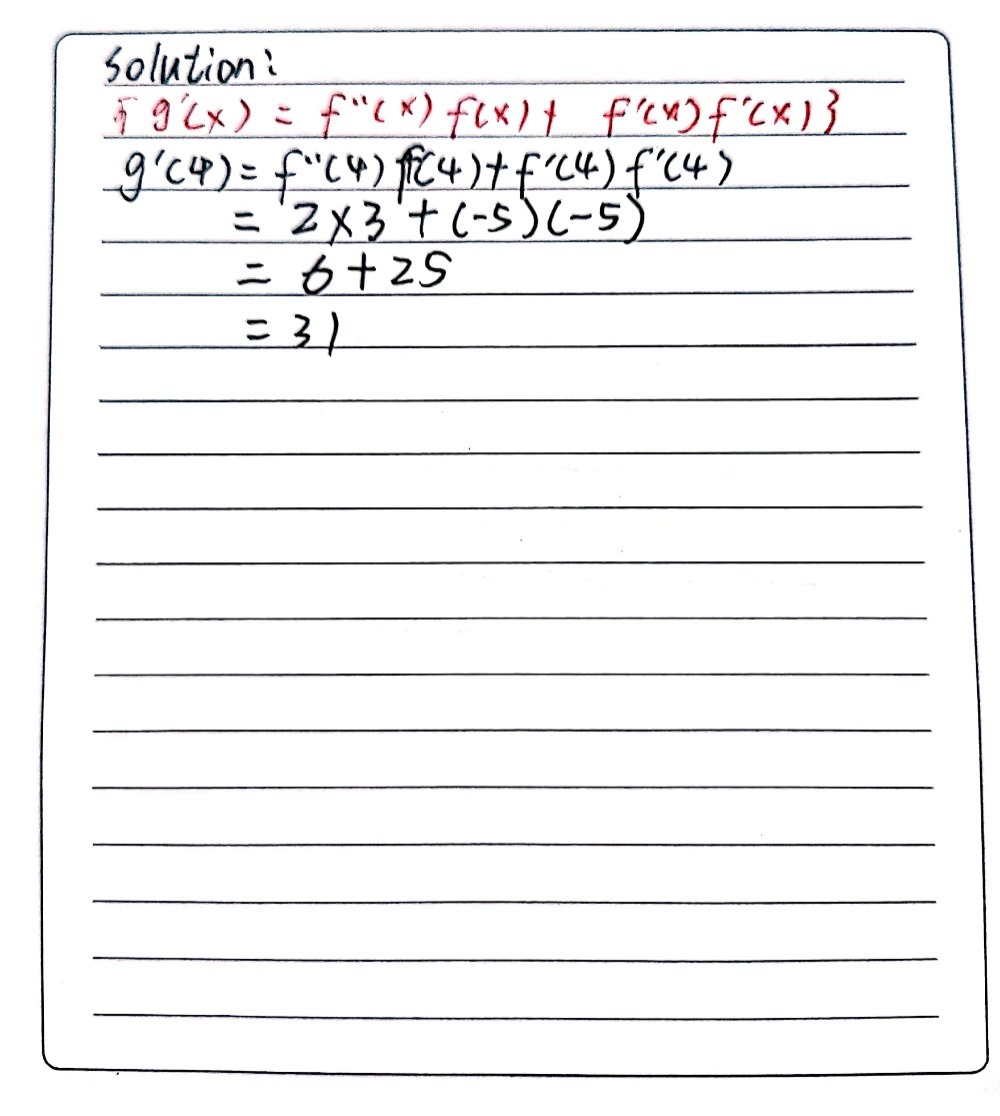 Solution:
{g'(x) = f''(x) f(x) + f'(x) f'(x)}
g'(4) = f''(4) f(4) + f'(4) f'(4)
= 2×3 + (-5)(-5)
= 6+25
= 31